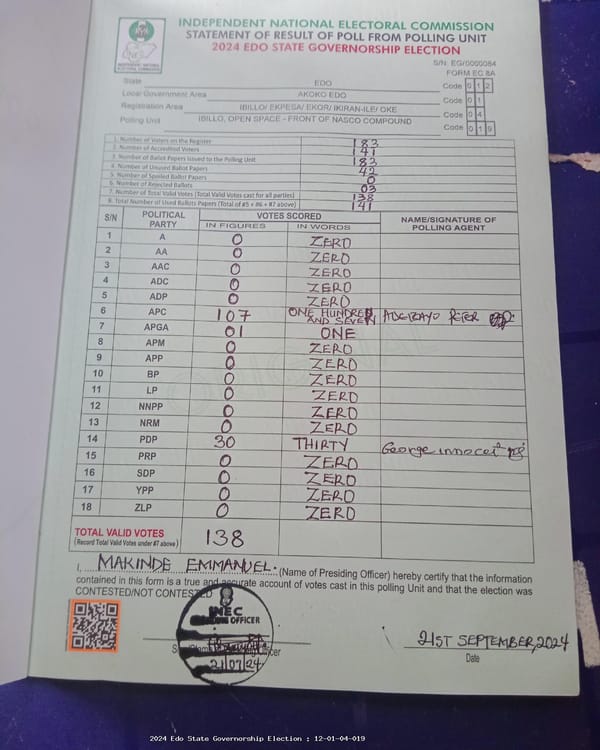 INDEPENDENT NATIONAL ELECTORAL COMMISSION
STATEMENT OF RESULT OF POLL FROM POLLING UNIT
2024 EDO STATE GOVERNORSHIP ELECTION
S/N: EG/0000084
FORM EC 8A
State EDO Code 0 1 2
Local Government Area AKOKO EDO Code 0 1
Registration Area IBILLO/ EKPESA/ EKOR/ IKIRAN-ILE/ OKE Code 0 4
Polling Unit IBILLO, OPEN SPACE - FRONT OF NASCO COMPOUND Code 0 1 9
1. Number of Voters on the Register 183
2. Number of Accredited Voters 141
3. Number of Ballot Papers Issued to the Polling Unit 183
4. Number of Unused Ballot Papers 42
5. Number of Spoiled Ballot Papers 0
6. Number of Rejected Ballots 03
7. Number of Total Valid Votes (Total Valid Votes cast for all parties) 138
8. Total Number of Used Ballots Papers (Total of #5 + #6 + #7 above) 141
S/N POLITICAL PARTY VOTES SCORED NAME/SIGNATURE OF POLLING AGENT
IN FIGURES IN WORDS
1 A 0 ZERO
2 AA 0 ZERO
3 AAC 0 ZERO
4 ADC 0 ZERO
5 ADP 0 ZERO
6 APC 107 ONE HUNDRED AND SEVEN ADEBAYO PETER
7 APGA 01 ONE
8 APM 0 ZERO
9 APP 0 ZERO
10 BP 0 ZERO
11 LP 0 ZERO
12 NNPP 0 ZERO
13 NRM 0 ZERO
14 PDP 30 THIRTY George innocet
15 PRP 0 ZERO
16 SDP 0 ZERO
17 YPP 0 ZERO
18 ZLP 0 ZERO
TOTAL VALID VOTES 138
(Record Total Valid Votes under #7 above)
I, MAKINDE EMMANUEL. (Name of Presiding Officer) hereby certify that the information
contained in this form is a true and accurate account of votes cast in this polling Unit and that the election was
CONTESTED/NOT CONTESTED
INEC
OFFICER
21/07/24
21ST SEPTEMBER, 2024
Date
2024 Edo State Governorship Election : 12-01-04-019